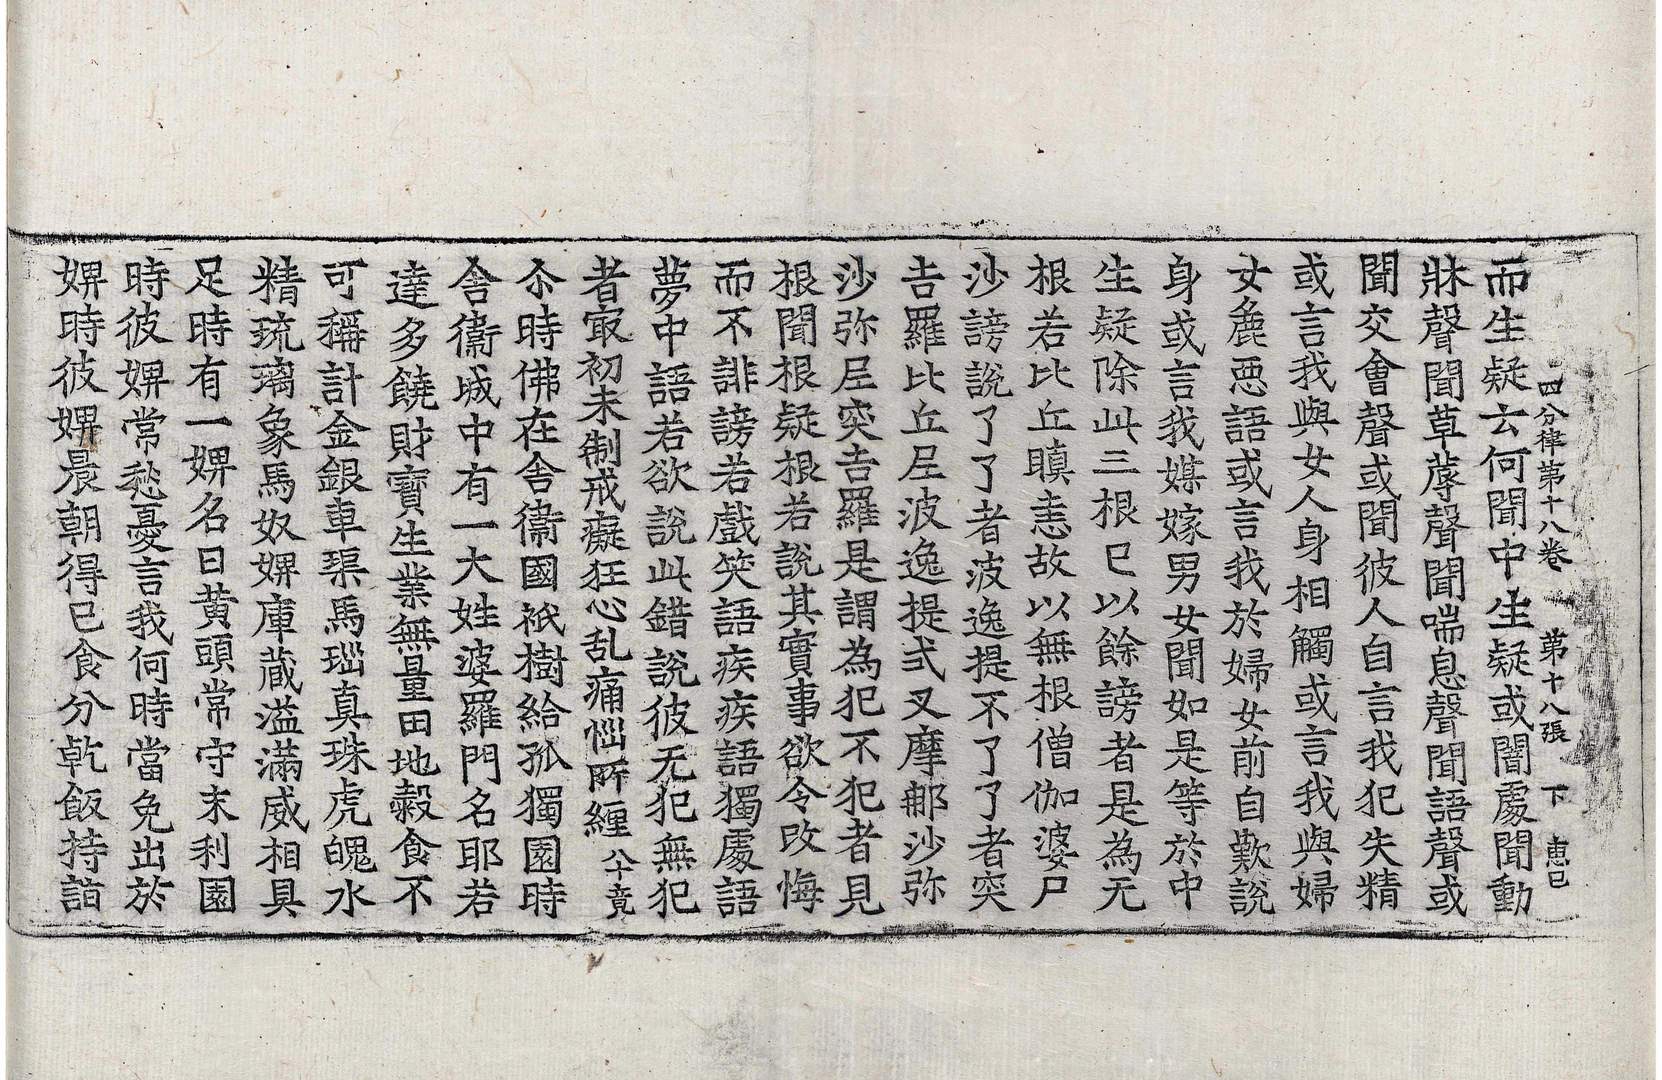 四分律第十八卷 第十八張 下 惠已
而生疑云何聞中生疑或闇處聞動
牀聲聞草蓐聲聞喘息聲聞語聲或
聞交會聲或聞彼人自言我犯失精
或言我與女人身相觸或言我與婦
女麁惡語或言我於婦女前自歎說
身或言我媒嫁男女聞如是等於中
生疑除此三根已以餘謗者是為无
根若比丘瞋恚故以無根僧伽婆尸
沙謗說了了者波逸提不了了者突
吉羅比丘尼波逸提式叉摩那沙弥
沙弥尼突吉羅是謂為犯不犯者見
根聞根疑根若說其實事欲令改悔
而不誹謗若戲笑語疾疾語獨處語
夢中語若欲說此錯說彼无犯無犯
者㝡初未制戒癡狂心乱痛惱所纏 八十竟
尒時佛在舍衞國祇樹給孤獨園時
舍衞城中有一大姓婆羅門名耶若
達多饒財寶生業無量田地穀食不
可稱計金銀車璖馬瑙真珠虎魄水
精琉璃象馬奴婢庫藏溢滿威相具
足時有一婢名曰黃頭常守末利園
時彼婢常愁憂言我何時當免出於
婢時彼婢晨朝得已食分乾飯持詣